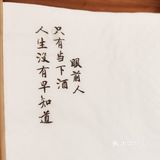 人生沒有早知道
只有当下酒
眼前人